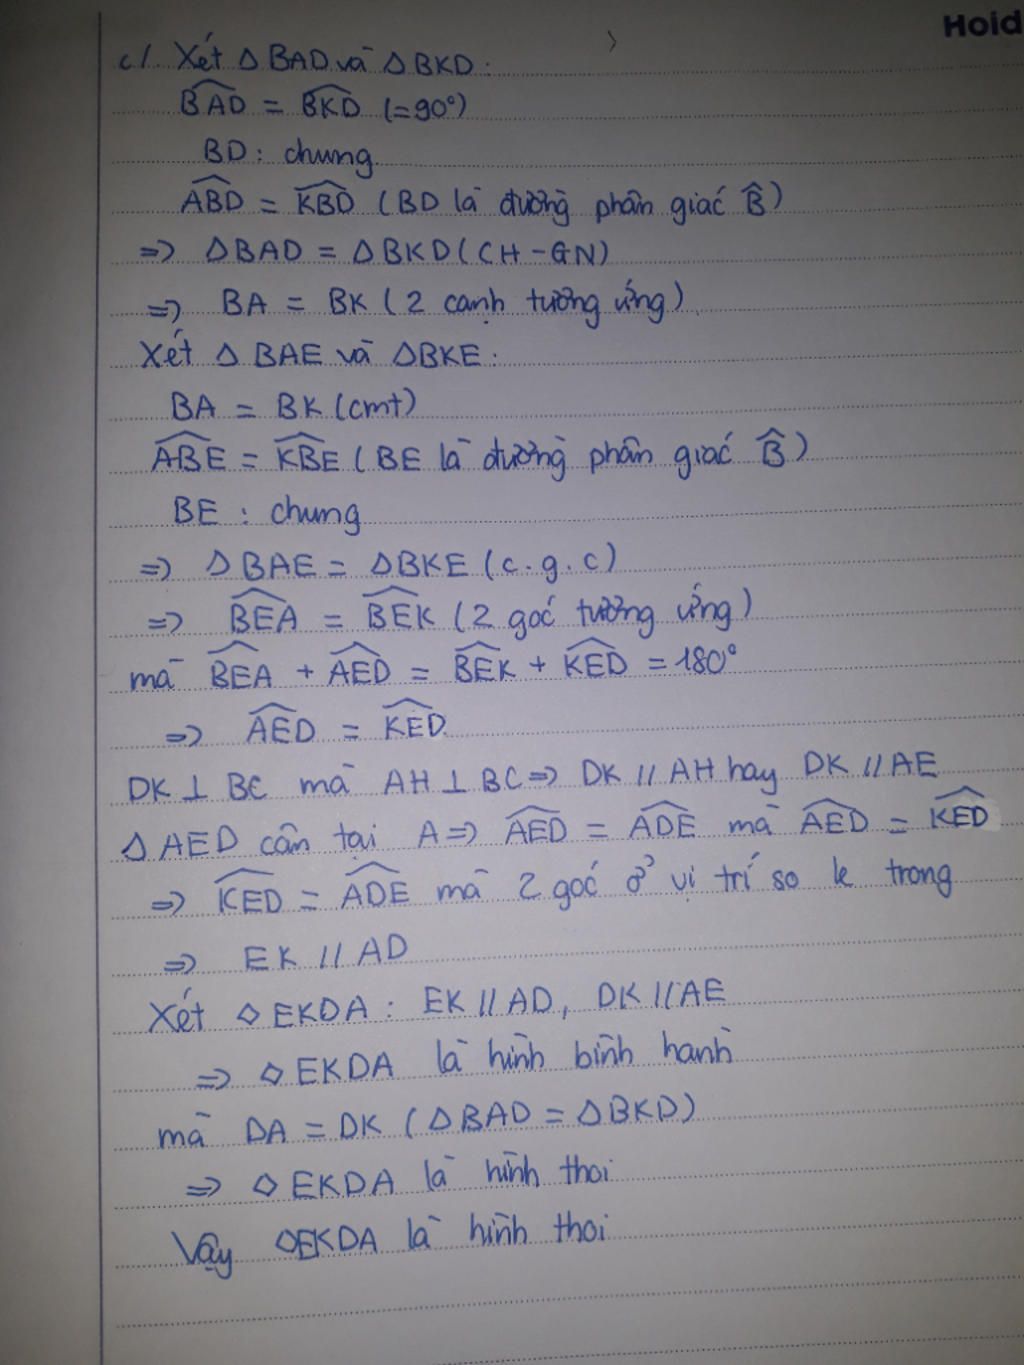 Hoid
c/. Xét △BAD và △BKD:
$\widehat{BAD}$ = $\widehat{BKD}$ (=90°)
BD: chung.
$\widehat{ABD}$ = $\widehat{KBD}$ (BD là đường phân giác $\widehat{B}$)
=> △BAD = △BKD (CH-GN)
=> BA = BK (2 cạnh tương ứng)
Xét △BAE và △BKE:
BA = BK (cmt)
$\widehat{ABE}$ = $\widehat{KBE}$ (BE là đường phân giác $\widehat{B}$)
BE: chung
=> △BAE = △BKE (c.g.c)
=> $\widehat{BEA}$ = $\widehat{BEK}$ (2 góc tương ứng)
mà $\widehat{BEA}$ + $\widehat{AED}$ = $\widehat{BEK}$ + $\widehat{KED}$ = 180°
=> $\widehat{AED}$ = $\widehat{KED}$.
DK ⊥ BC mà AH ⊥ BC => DK // AH hay DK // AE
△AED cân tại A => $\widehat{AED}$ = $\widehat{ADE}$ mà $\widehat{AED}$ = $\widehat{KED}$
=> $\widehat{KED}$ = $\widehat{ADE}$ mà 2 góc ở vị trí so le trong
=> EK // AD
Xét ◇EKDA: EK // AD, DK // AE
=> ◇EKDA là hình bình hành
mà DA = DK (△BAD = △BKD)
=> ◇EKDA là hình thoi
Vậy ◇EKDA là hình thoi